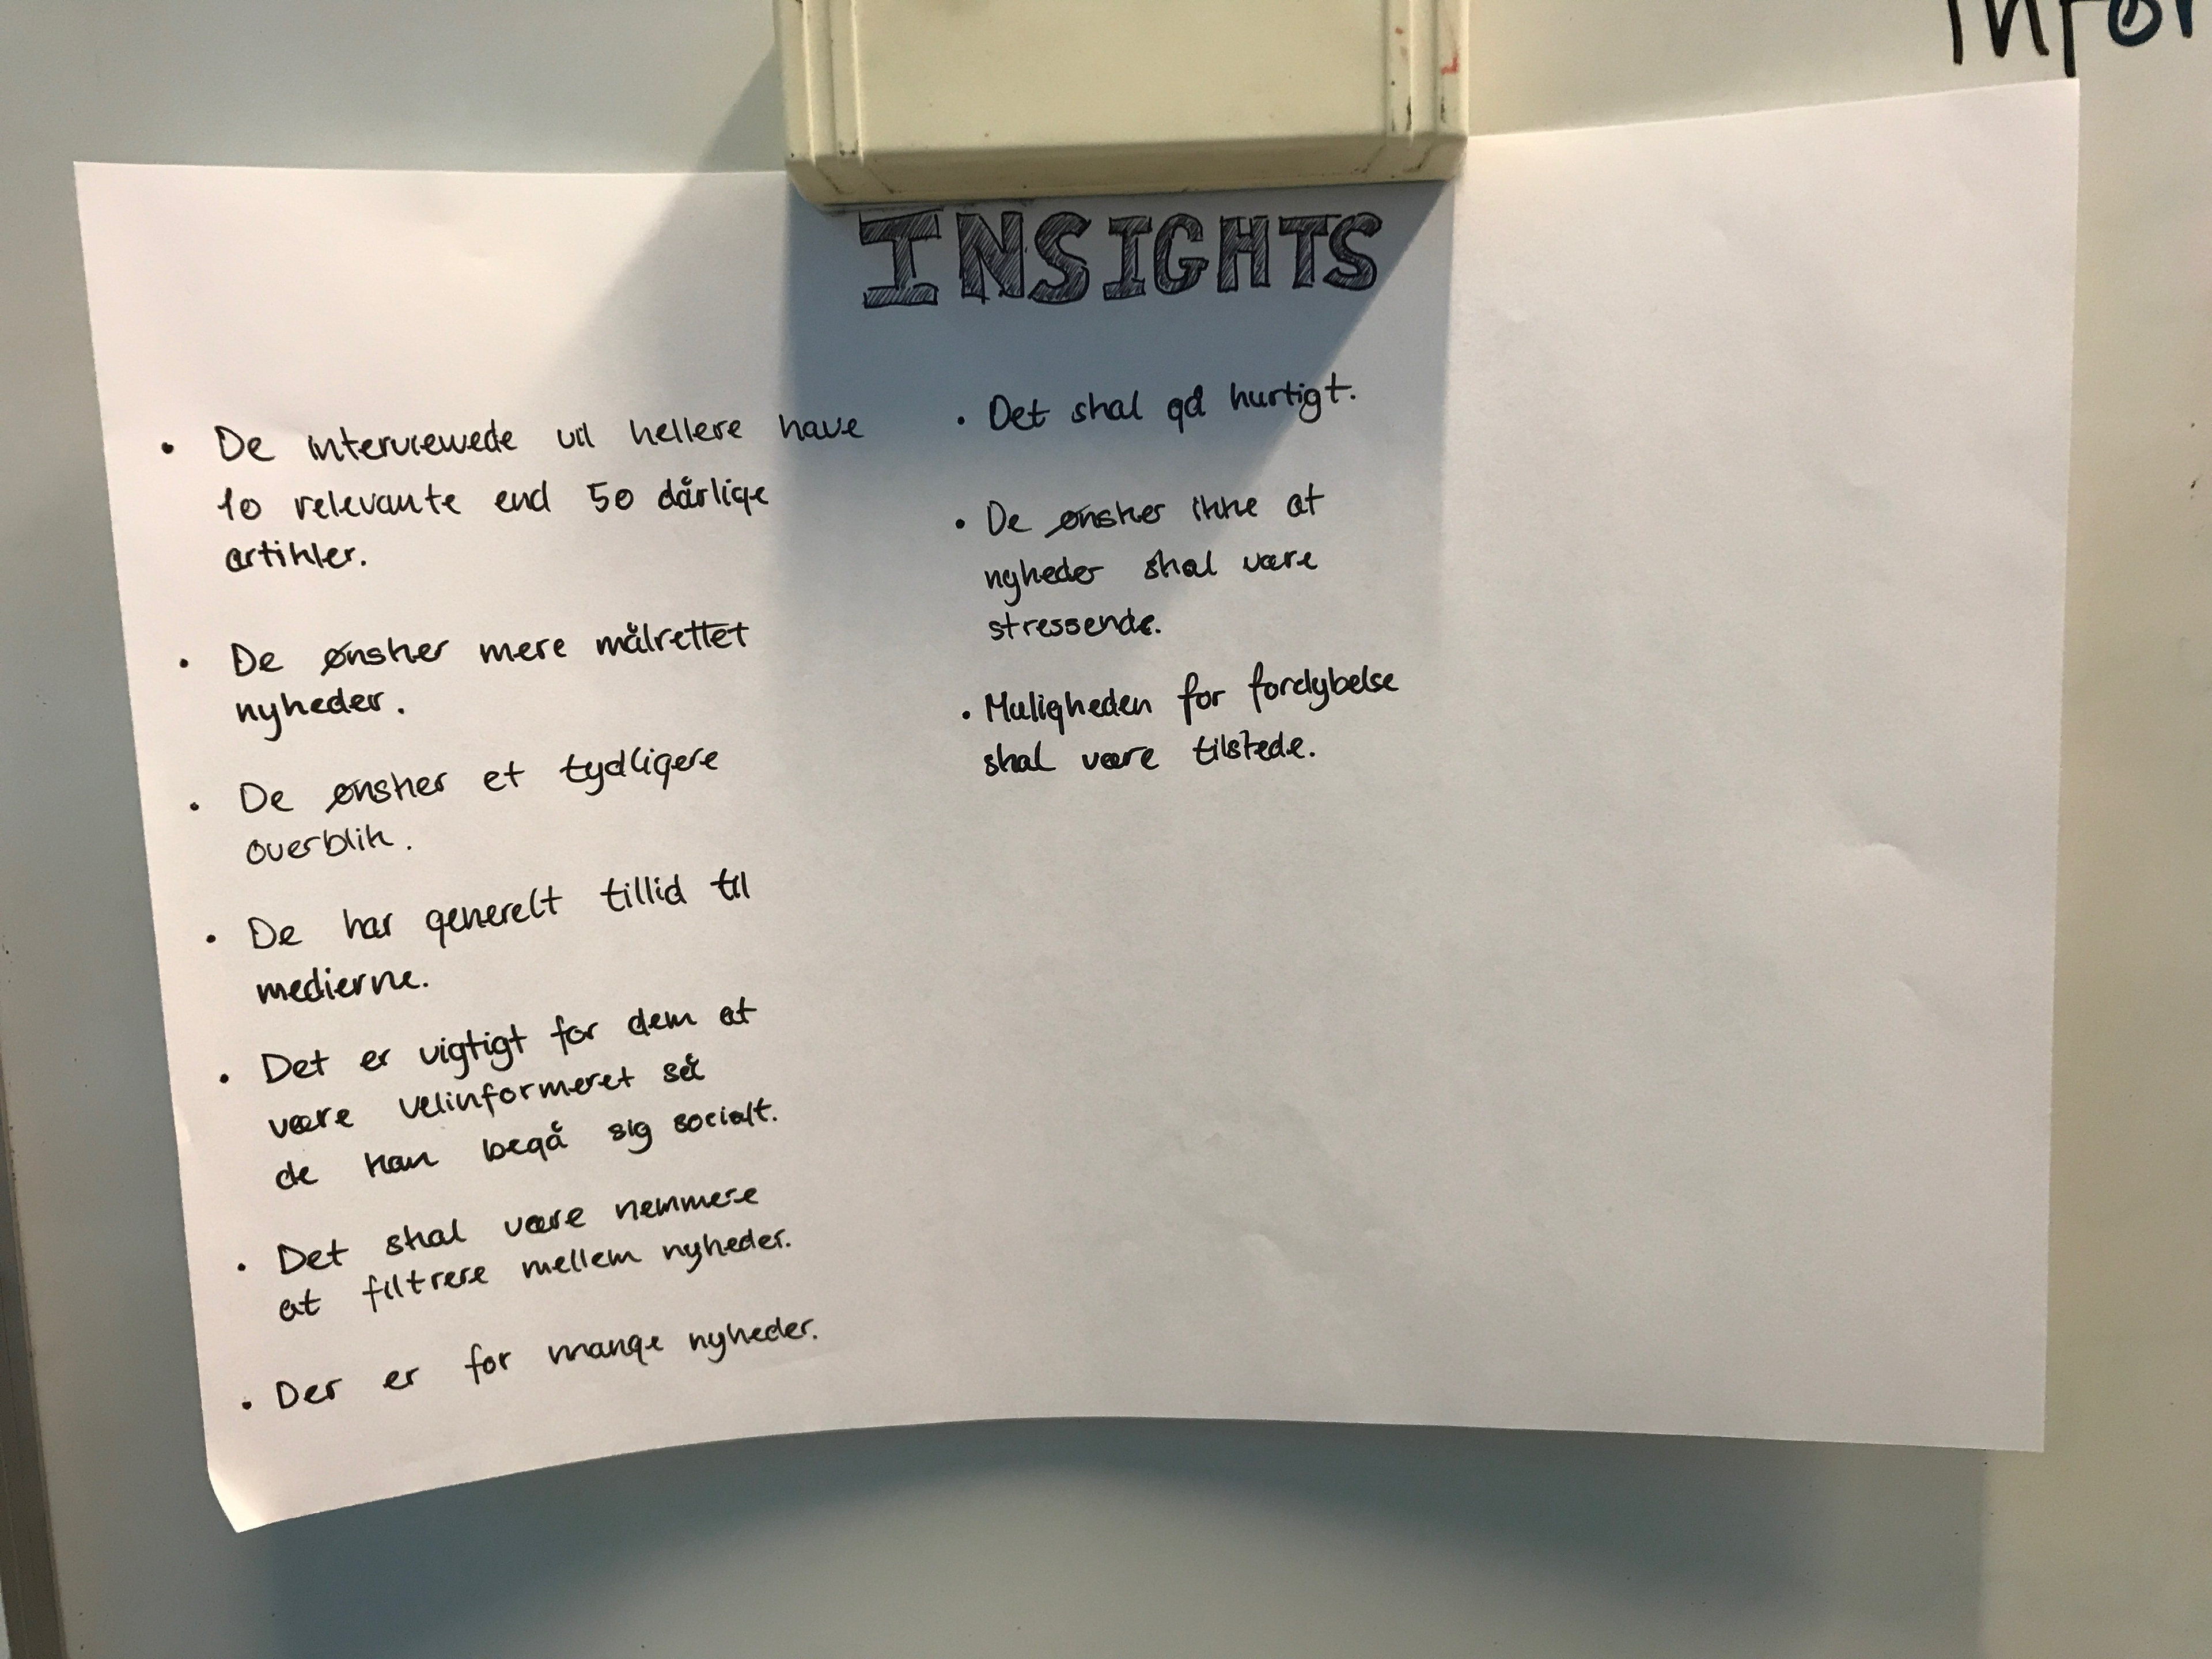 INSIGHTS
• De interviewede vil hellere have
10 relevante end 50 dårlige
artikler.
• De ønsker mere målrettet
nyheder.
• De ønsker et tydligere
overblik.
• De har generelt tillid til
medierne.
• Det er vigtigt for dem at
være velinformeret så
de kan begå sig socialt.
• Det skal være nemmere
at filtrere mellem nyheder.
• Der er for mange nyheder.
• Det skal gå hurtigt.
• De ønsker ikke at
nyheder skal være
stressende.
• Muligheden for fordybelse
skal være tilstede.